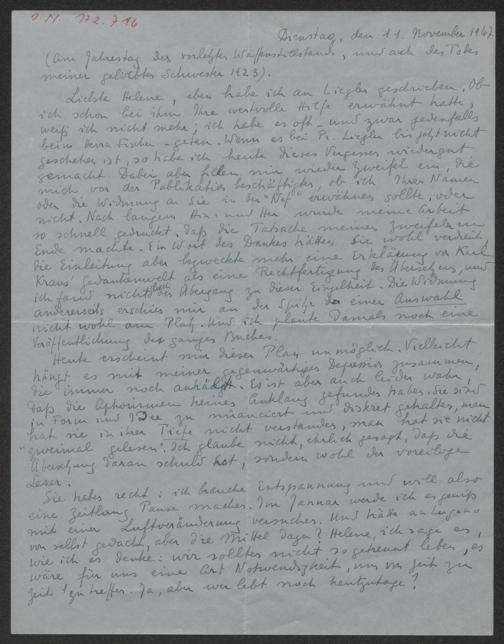 I.N. 172.716
Dienstag, den 11. November 1947
(Am Jahrestag des vorletzten Waffenstillstands, und auch des Todes
meiner geliebten Schwester 1923).
Liebste Helene, eben habe ich an Liegler geschrieben. Ob
ich schon bei ihm Ihre wertvolle Hilfe erwähnt hatte,
weiß ich nicht mehr; ich habe es oft - und zwar jedenfalls
beim Verra Fischer - getan. Wenn es bei Pr. Liegler bis jetzt nicht
geschehen ist, so habe ich heute dieses Vergessen wiedergut
gemacht. Dabei aber fielen mir wieder Zweifel ein, die
mich vor der Publikation beschäftigten, ob ich Ihren Namen
oder die Widmung an Sie in der "Nef" erwähnen sollte, oder
nicht. Nach langem Hin und Her wurde meine Arbeit
so schnell gedruckt, daß die Tatsache meinen Zweifeln ein
Ende machte. Ein Wort des Dankes hätten Sie wohl verdient,
die Einleitung aber bezweckte mehr eine Erklärung von Karl
Kraus' Gedankenwelt als eine Rechtfertigung des Übersetzers, und
ich fand nicht den Übergang zu dieser Einzelheit. Die Widmung
anderenseits erschien mir an der Spitze einer Auswahl
nicht wohl am Platz. Und ich plante damals noch eine
Veröffentlichung des ganzen Buches.
Heute erscheint mir dieser Plan unmöglich. Vielleicht
hängt es mit meiner gegenwärtigen Depression zusammen,
die immer noch anhält. Es ist aber auch leider wahr,
daß die Aphorismen keinen Anklang gefunden haben. Sie sind
in Form und Idee zu nuanciert und diskret gehalten, man
hat sie in ihrer Tiefe nicht verstanden, man hat sie nicht
"zweimal gelesen". Ich glaube nicht, ehrlich gesagt, daß die
Übersetzung daran schuld hat, sondern wohl der voreilige
Leser.
Sie haben recht: ich brauche Entspannung und will also
eine zeitlang Pause machen. Im Januar werde ich es gewiß
mit einer Luftveränderung versuchen. Und hätte an Lugano
von selbst gedacht, aber die Mittel dazu? Helene, ich sage es,
wie ich es denke: wir sollten nicht so getrennt leben, es
wäre für uns eine Art Notwendigkeit, uns von Zeit zu
Zeit zu treffen. Ja, aber wer lebt noch heutzutage?